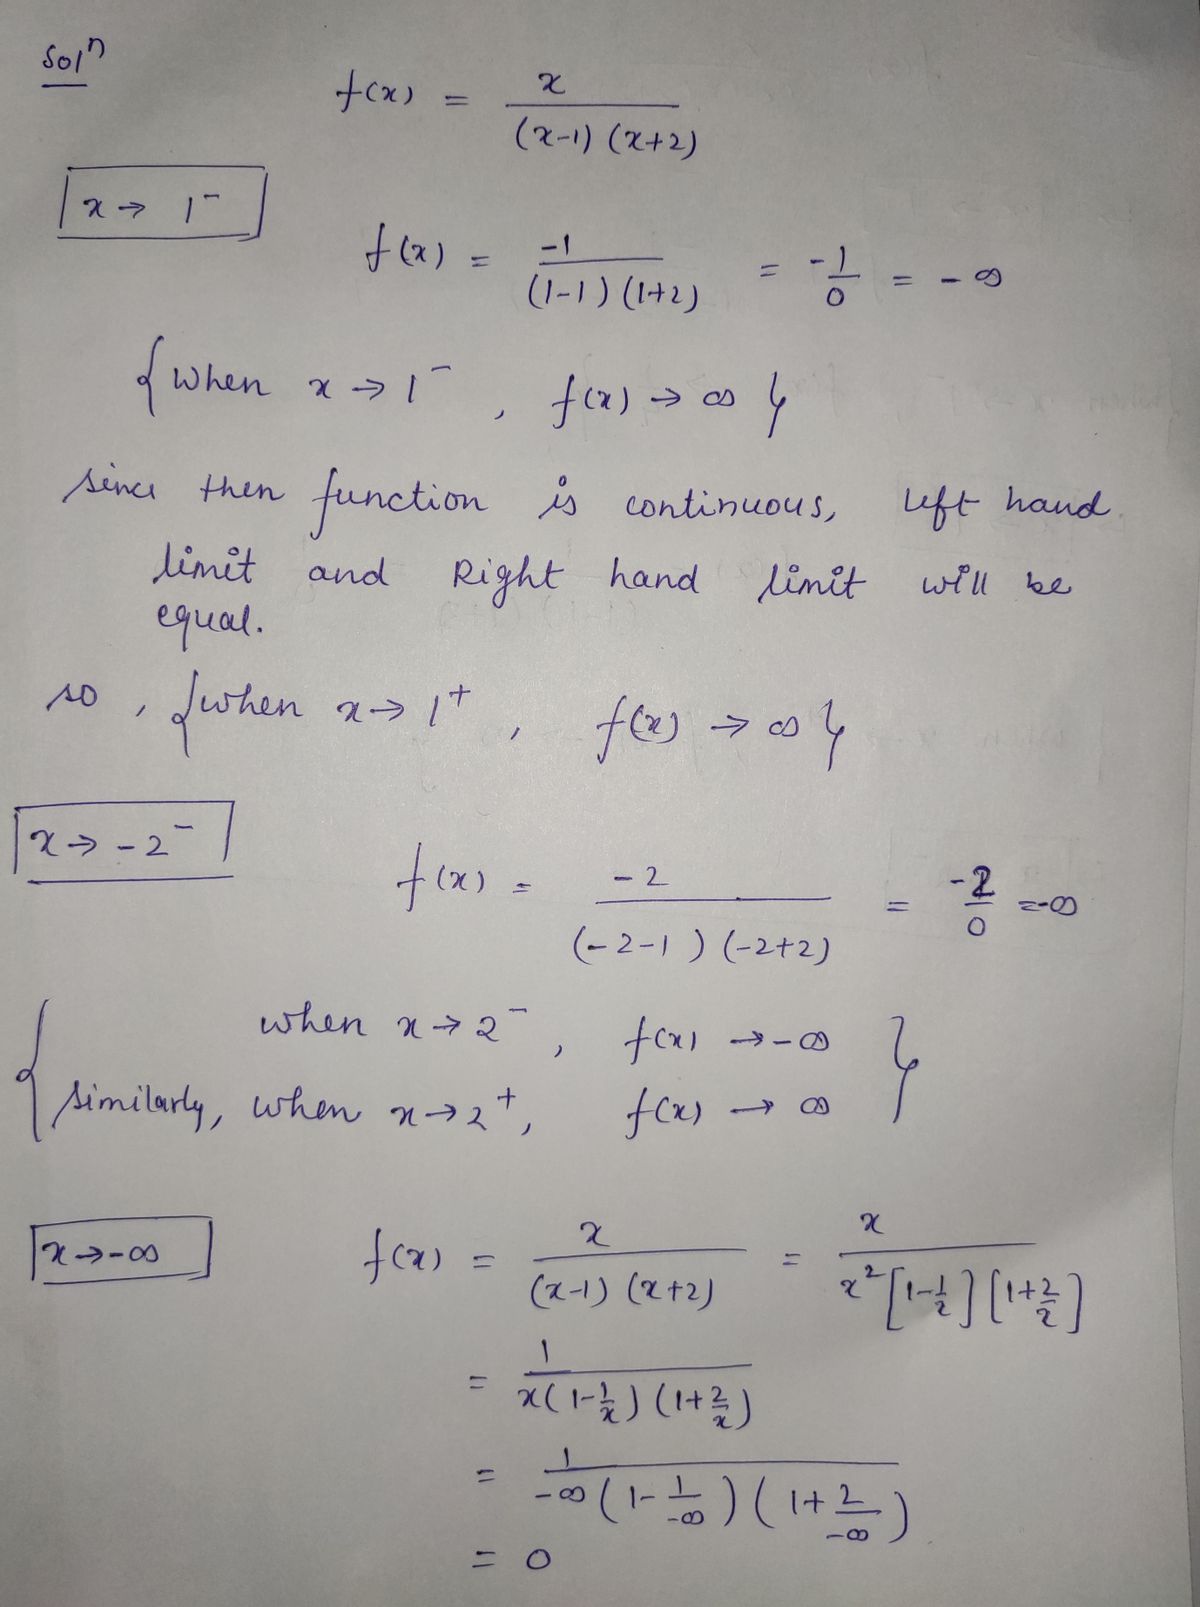 Solⁿ
f(x) = x / (x-1) (x+2)
x → 1⁻
f(x) = -1 / (1-1) (1+2) = -1/0 = -∞
{ when x → 1⁻ , f(x) → ∞ }
since then function is continuous, left hand
limit and Right hand limit will be
equal.
so , { when x → 1⁺ , f(x) → ∞ }
x → -2⁻
f(x) = -2 / (-2-1) (-2+2) = -2/0 = -∞
{ when x → 2⁻ , f(x) → -∞ }
similarly, when x → 2⁺, f(x) → ∞
x → -∞
f(x) = x / (x-1) (x+2) = x / x² [1-1/x] [1+2/x]
= 1 / x(1-1/x) (1+2/x)
= 1 / -∞ (1- 1/-∞) (1+ 2/-∞)
= 0